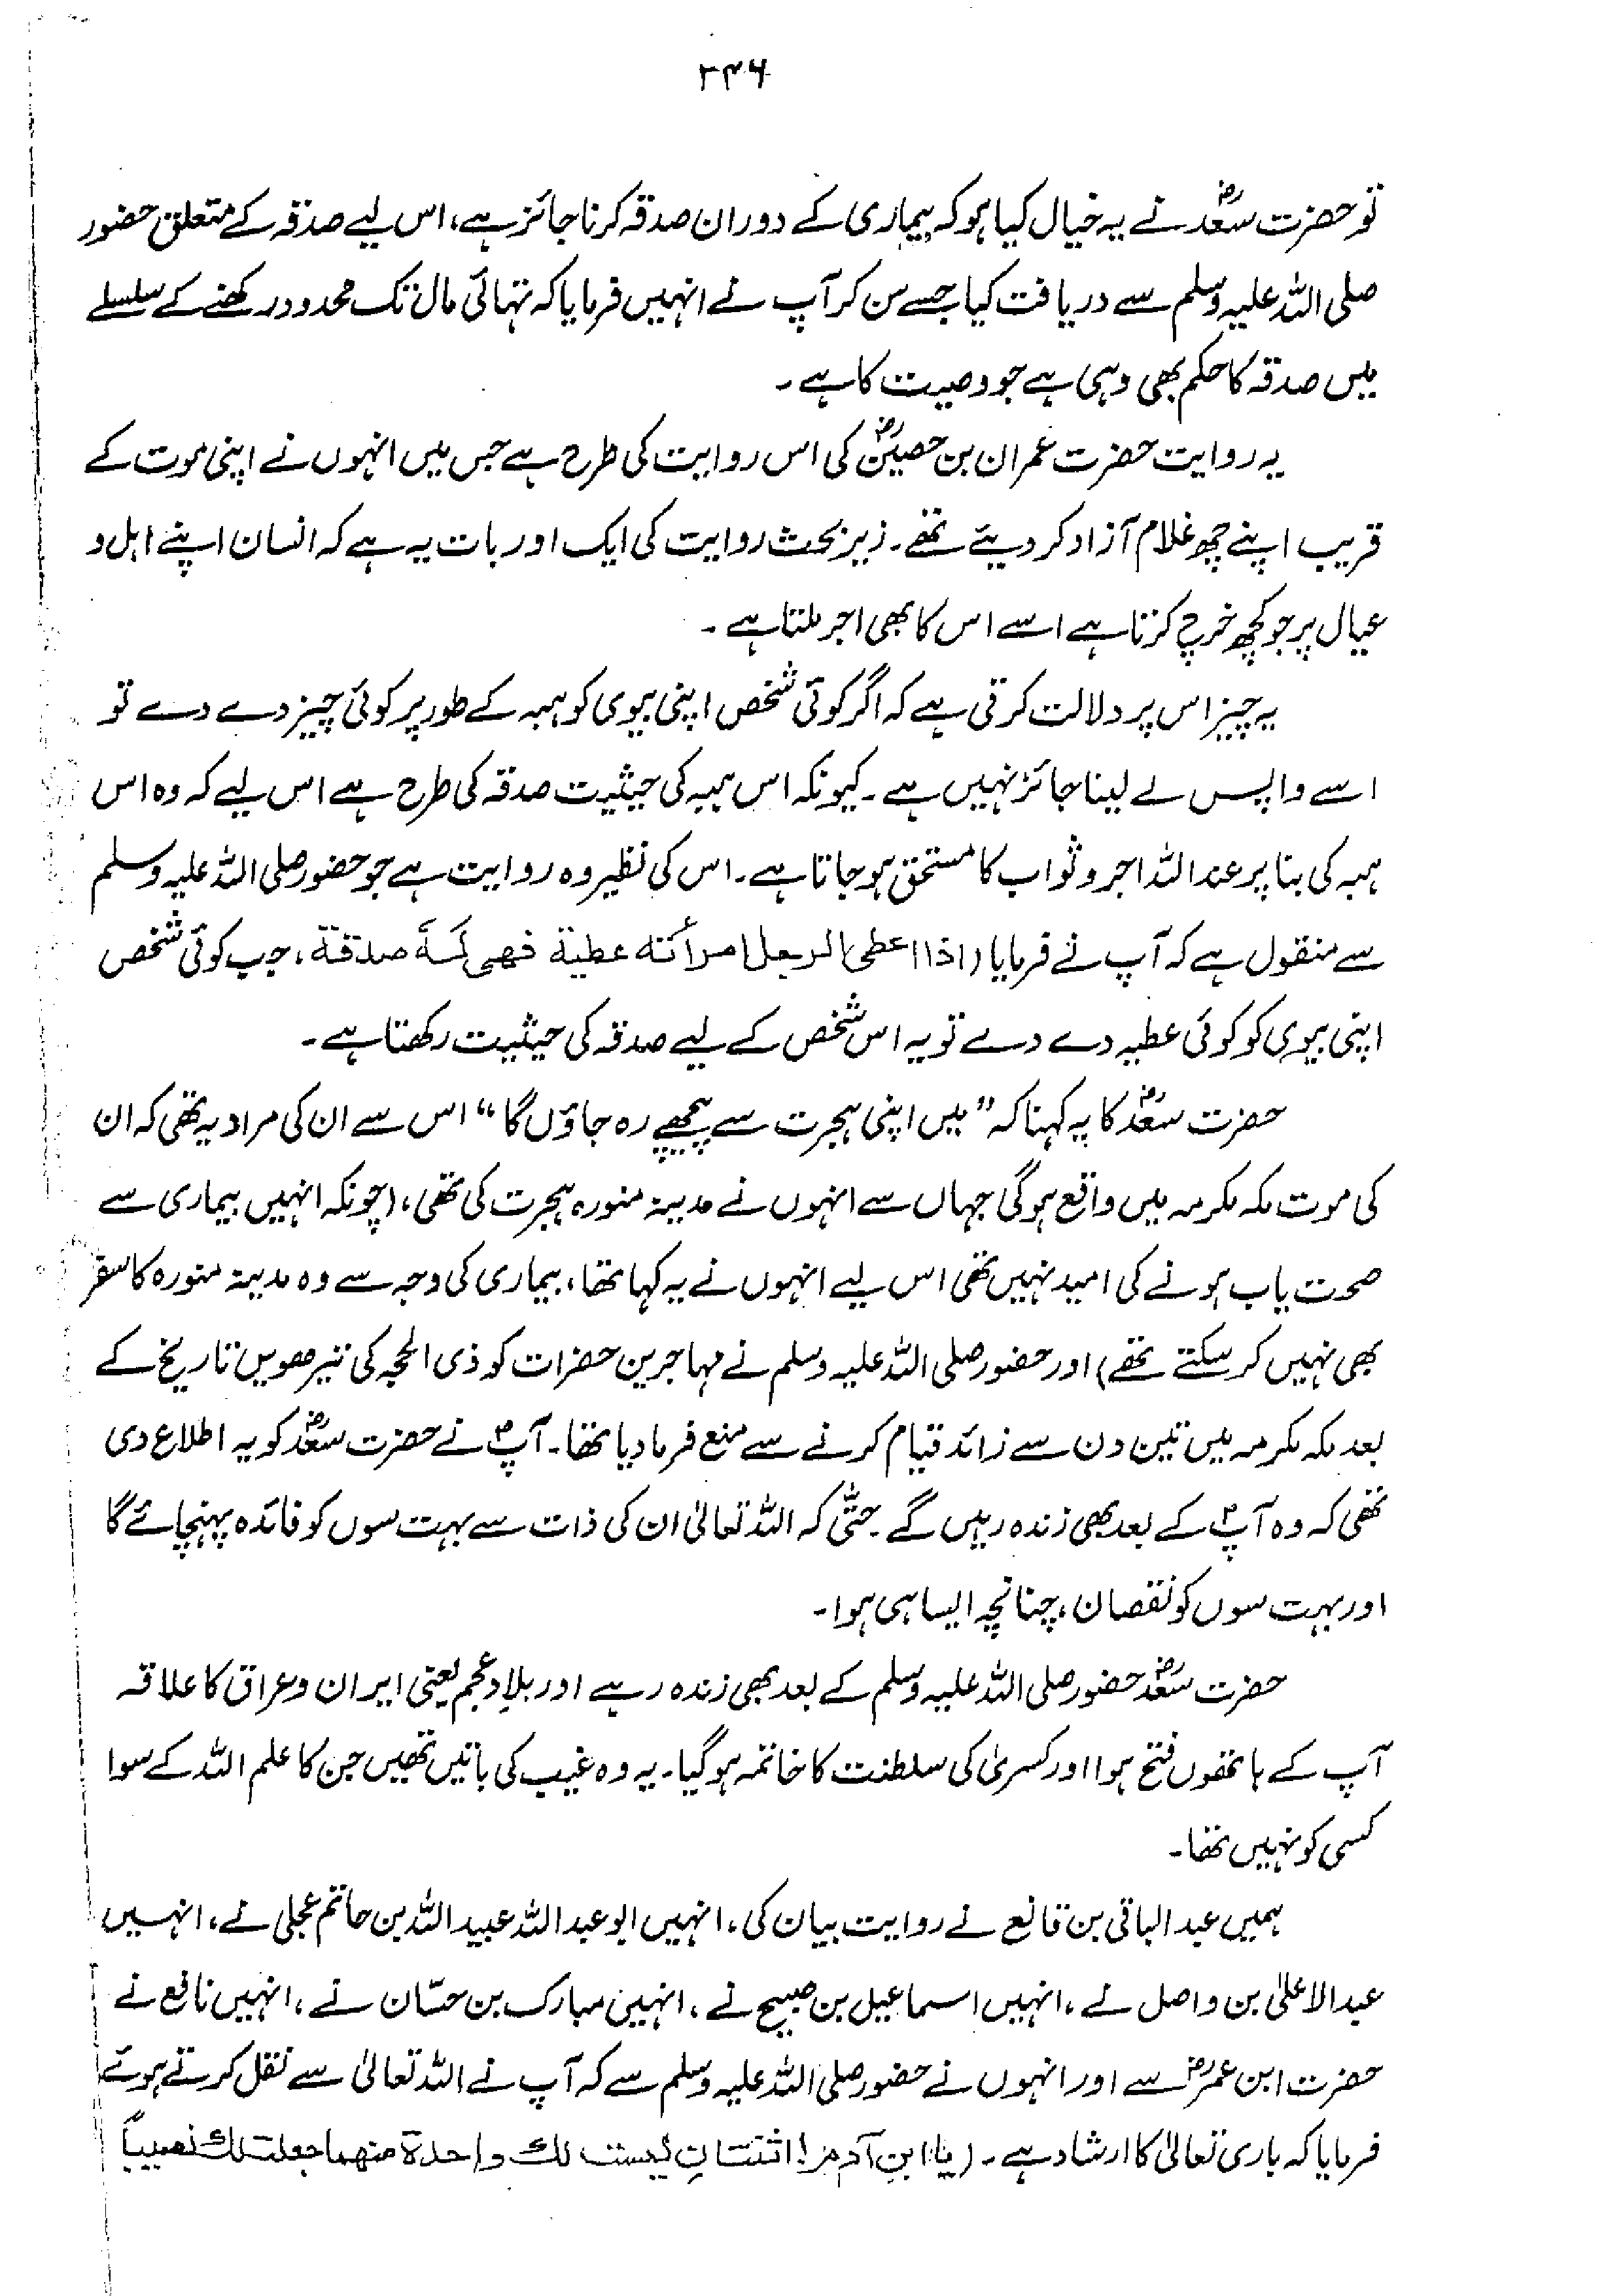 ۲۴۶
تو حضرت سعدؓ نے یہ خیال کیا ہو کہ بیماری کے دوران صدقہ کرنا جائز ہے، اس لیے صدقہ کے متعلق حضور
صلی اللہ علیہ وسلم سے دریافت کیا جسے سن کر آپ نے انہیں فرمایا کہ تہائی مال تک محدود رکھنے کے سلسلے
میں صدقہ کا حکم بھی وہی ہے جو وصیت کا ہے۔
یہ روایت حضرت عمران بن حصینؓ کی اس روایت کی طرح ہے جس میں انہوں نے اپنی موت کے
قریب اپنے چھ غلام آزاد کر دیئے تھے۔ زیر بحث روایت کی ایک اور بات یہ ہے کہ انسان اپنے اہل و
عیال پر جو کچھ خرچ کرتا ہے اسے اس کا بھی اجر ملتا ہے۔
یہ چیز اس پر دلالت کرتی ہے کہ اگر کوئی شخص اپنی بیوی کو ہبہ کے طور پر کوئی چیز دے دے تو
اسے واپس لے لینا جائز نہیں ہے۔ کیونکہ اس ہبہ کی حیثیت صدقہ کی طرح ہے اس لیے کہ وہ اس
ہبہ کی بنا پر عند اللہ اجر و ثواب کا مستحق ہو جاتا ہے۔ اس کی نظیر وہ روایت ہے جو حضور صلی اللہ علیہ وسلم
سے منقول ہے کہ آپ نے فرمایا (اذا اعطی الرجل امرأته عطية فھی لہ صدقة، جب کوئی شخص
اپنی بیوی کو کوئی عطیہ دے دے تو یہ اس شخص کے لیے صدقہ کی حیثیت رکھتا ہے۔
حضرت سعدؓ کا یہ کہنا کہ ”میں اپنی ہجرت سے پیچھے رہ جاؤں گا“ اس سے ان کی مراد یہ تھی کہ ان
کی موت مکہ مکرمہ میں واقع ہوگی جہاں سے انہوں نے مدینہ منورہ ہجرت کی تھی، (چونکہ انہیں بیماری سے
صحت یاب ہونے کی امید نہیں تھی اس لیے انہوں نے یہ کہا تھا، بیماری کی وجہ سے وہ مدینہ منورہ کا سفر
بھی نہیں کر سکتے تھے) اور حضور صلی اللہ علیہ وسلم نے مہاجرین حضرات کو ذی الحجہ کی تیرھویں تاریخ کے
بعد مکہ مکرمہ میں تین دن سے زائد قیام کرنے سے منع فرما دیا تھا۔ آپؐ نے حضرت سعدؓ کو یہ اطلاع دی
تھی کہ وہ آپؐ کے بعد بھی زندہ رہیں گے۔ حتّٰی کہ اللہ تعالیٰ ان کی ذات سے بہت سوں کو فائدہ پہنچائے گا
اور بہت سوں کو نقصان، چنانچہ ایسا ہی ہوا۔
حضرت سعدؓ حضور صلی اللہ علیہ وسلم کے بعد بھی زندہ رہے اور بلادِ عجم یعنی ایران و عراق کا علاقہ
آپ کے ہاتھوں فتح ہوا اور کسریٰ کی سلطنت کا خاتمہ ہو گیا۔ یہ وہ غیب کی باتیں تھیں جن کا علم اللہ کے سوا
کسی کو نہیں تھا۔
ہمیں عبدالباقی بن قانع نے روایت بیان کی، انہیں ابو عبداللہ عبیداللہ بن حاتم عجلی نے، انہیں
عبدالاعلیٰ بن واصل نے، انہیں اسماعیل بن صبیح نے، انہیں مبارک بن حسّان نے، انہیں نافع نے
حضرت ابن عمرؓ سے اور انہوں نے حضور صلی اللہ علیہ وسلم سے کہ آپ نے اللہ تعالیٰ سے نقل کرتے ہوئے
فرمایا کہ باری تعالیٰ کا ارشاد ہے۔ (یا ابن آدم! اثنتان لیست لك واحدة منهما جعلت لك نصیباً